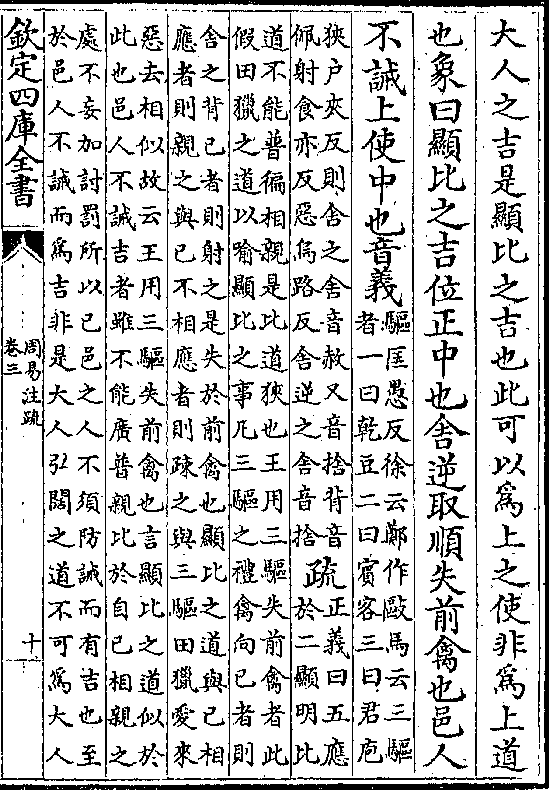 大人之吉是顯比之吉也此可以為上之使非為上道
也象曰顯比之吉位正中也舍逆取順失前禽也邑人
不誡上使中也音義
驅匡愚反徐云鄭作敺馬云三驅
者一曰乾豆二曰賓客三曰君庖
狹户夾反則舍之舍音赦又音捨背音
佩射食亦反惡烏路反舍逆之舍音捨
疏
正義曰五應
於二顯明比
道不能普徧相親是比道狹也王用三驅失前禽者此
假田獵之道以喻顯比之事凡三驅之禮禽向已者則
舍之背已者則射之是失於前禽也顯比之道與已相
應者則親之與已不相應者則疎之與三驅田獵愛來
惡去相似故云王用三驅失前禽也言顯比之道似於
此也邑人不誡吉者雖不能廣普親比於自已相親之
處不妄加討罰所以已邑之人不須防誡而有吉也至
於邑人不誡而為吉非是大人弘闊之道不可為大人
欽定四庫全書
周易注疏
卷三
十